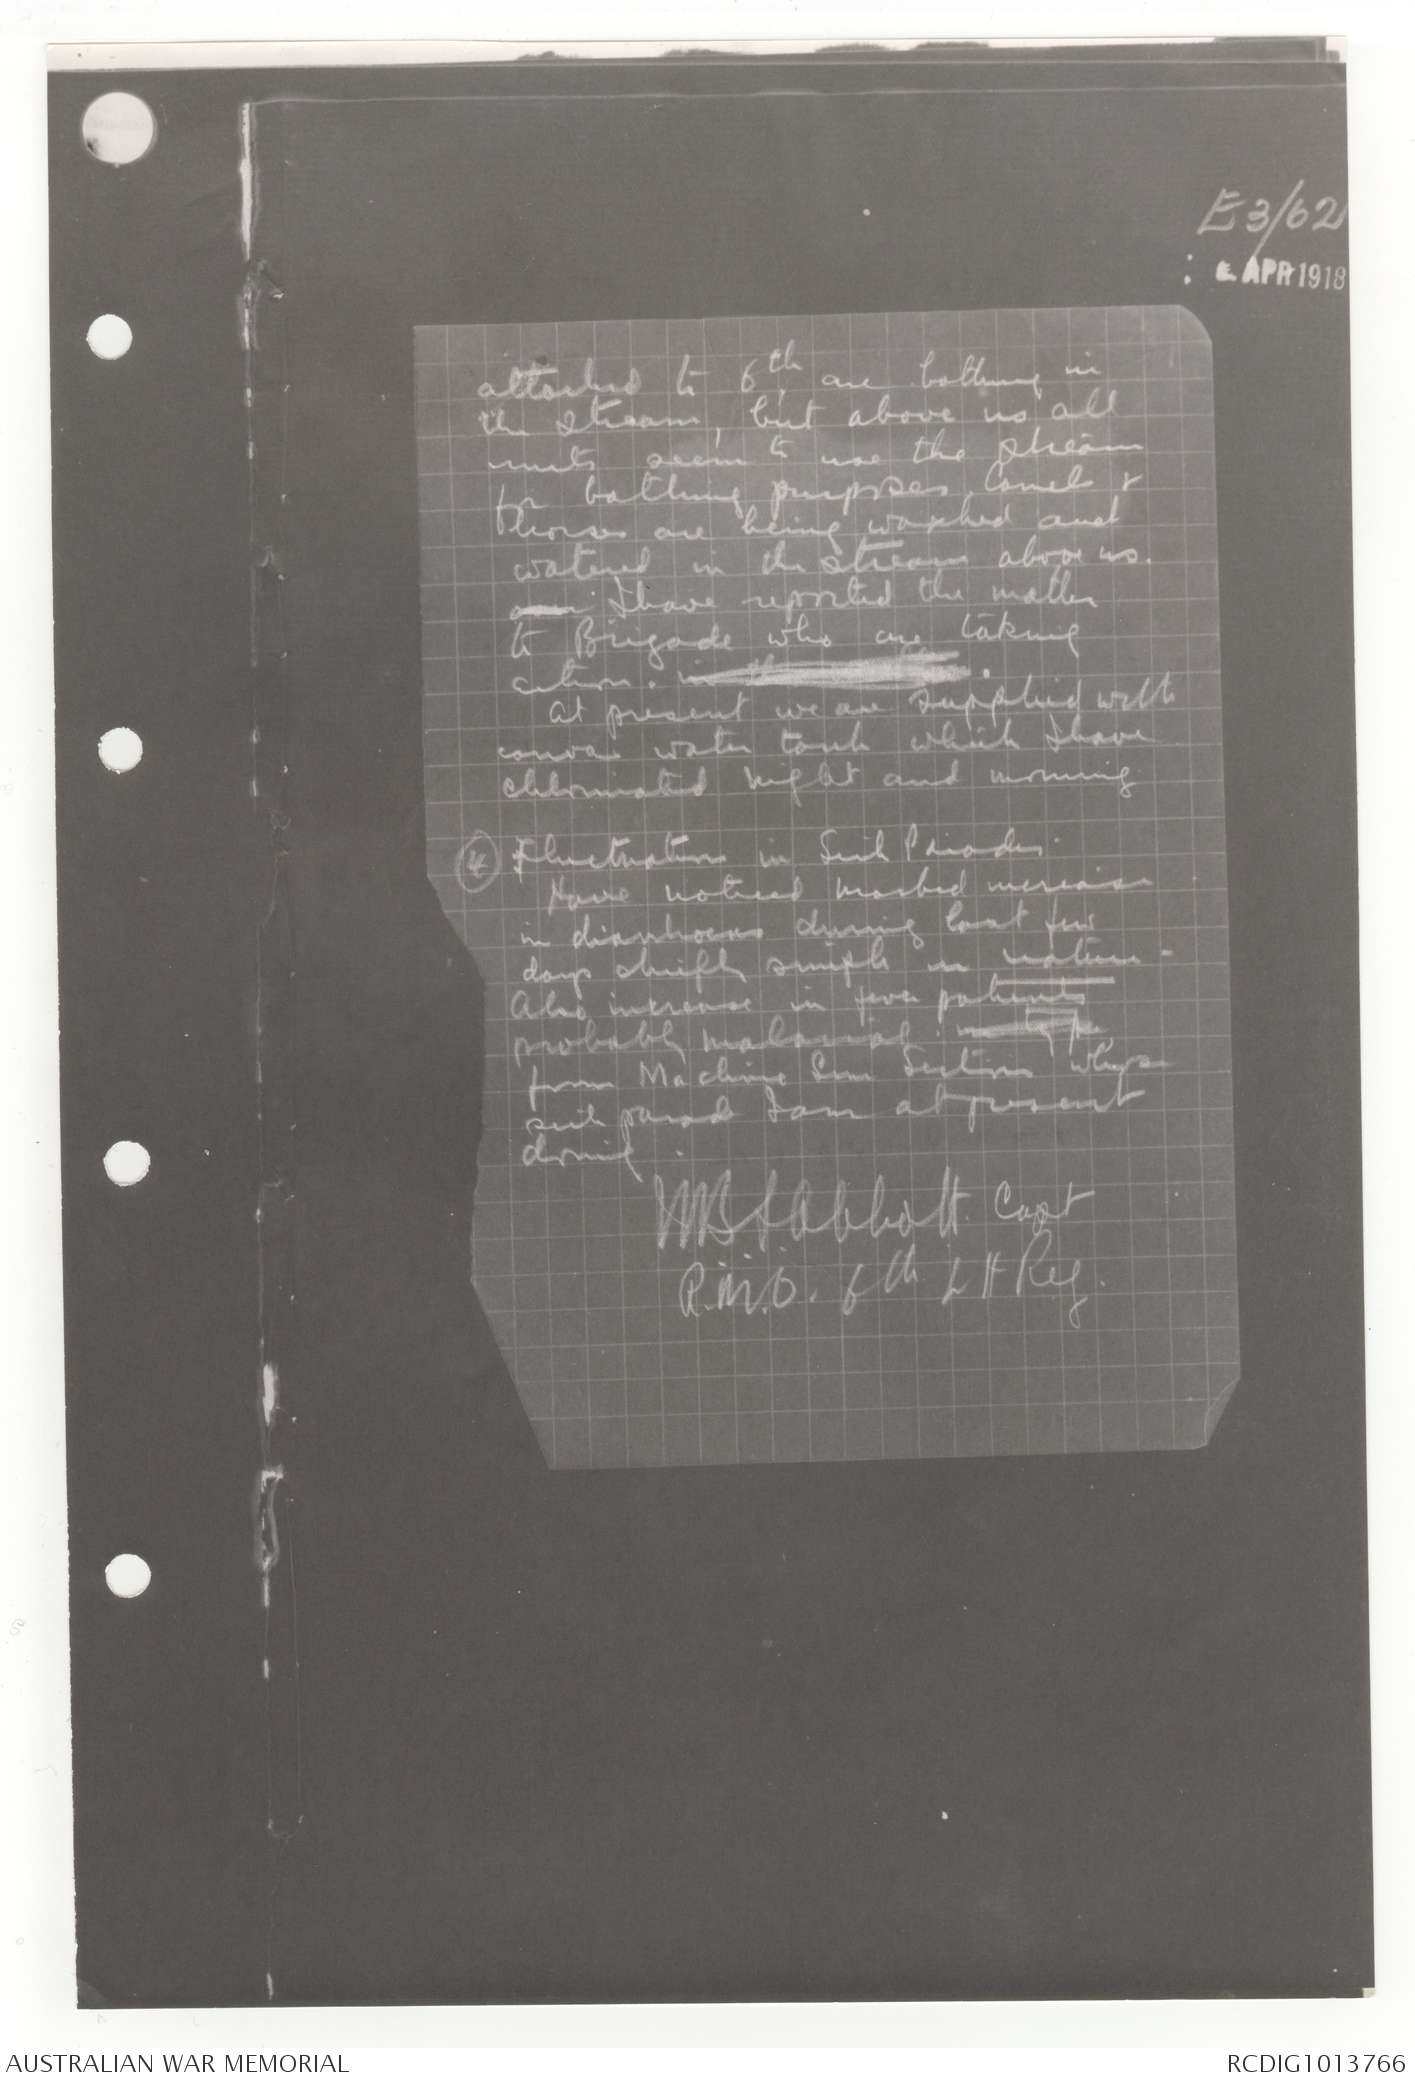 E3/62
APR 1918
attached to 6th are bathing in
the stream, but above us all
units seem to use the stream
for bathing purposes. Camels &
horses are being washed and
watered in the stream above us.
I have reported the matter
to Brigade who are taking
action.
At present we are supplied with
canvas water tank which I have
chlorinated night and morning
(4) Fluctuation in Sick Parades.
Have noticed marked increase
in diarrhoeas during last few
days chiefly simple in nature -
Also increase in fever patients
probably malarial.
from Machine Gun Section whose
sick parade I am at present
doing.
Abbott Capt
R.M.O. 6th L H Reg.
AUSTRALIAN WAR MEMORIAL
RCDIG1013766